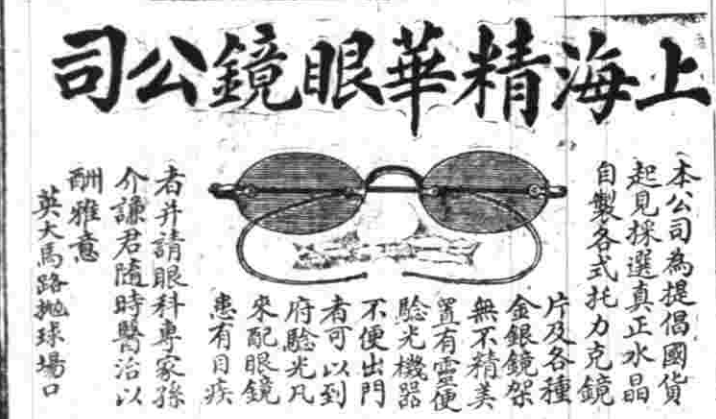 上海精華眼鏡公司
本公司為提倡國貨
起見採選真正水晶
自製各式托力克鏡
片及各種
金銀鏡架
無不精美
置有靈便
驗光機器
不便出門
者可以到
府驗光凡
來配眼鏡
患有目疾
者并請眼科專家孫
介謙君隨時醫治以
酬雅意
英大馬路拋球場口